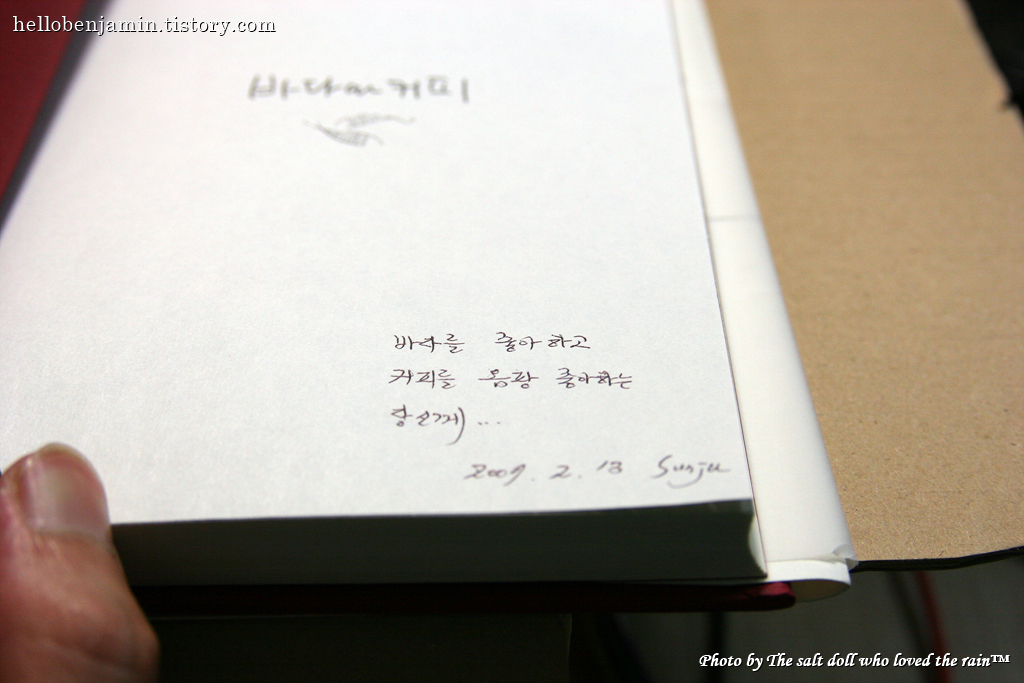 hellobenjamin.tistory.com
바다와커피
바다를 좋아하고
커피를 몹쓸 좋아하는
당신께) ...
2009. 2. 13 Sunju
Photo by The salt doll who loved the rain™